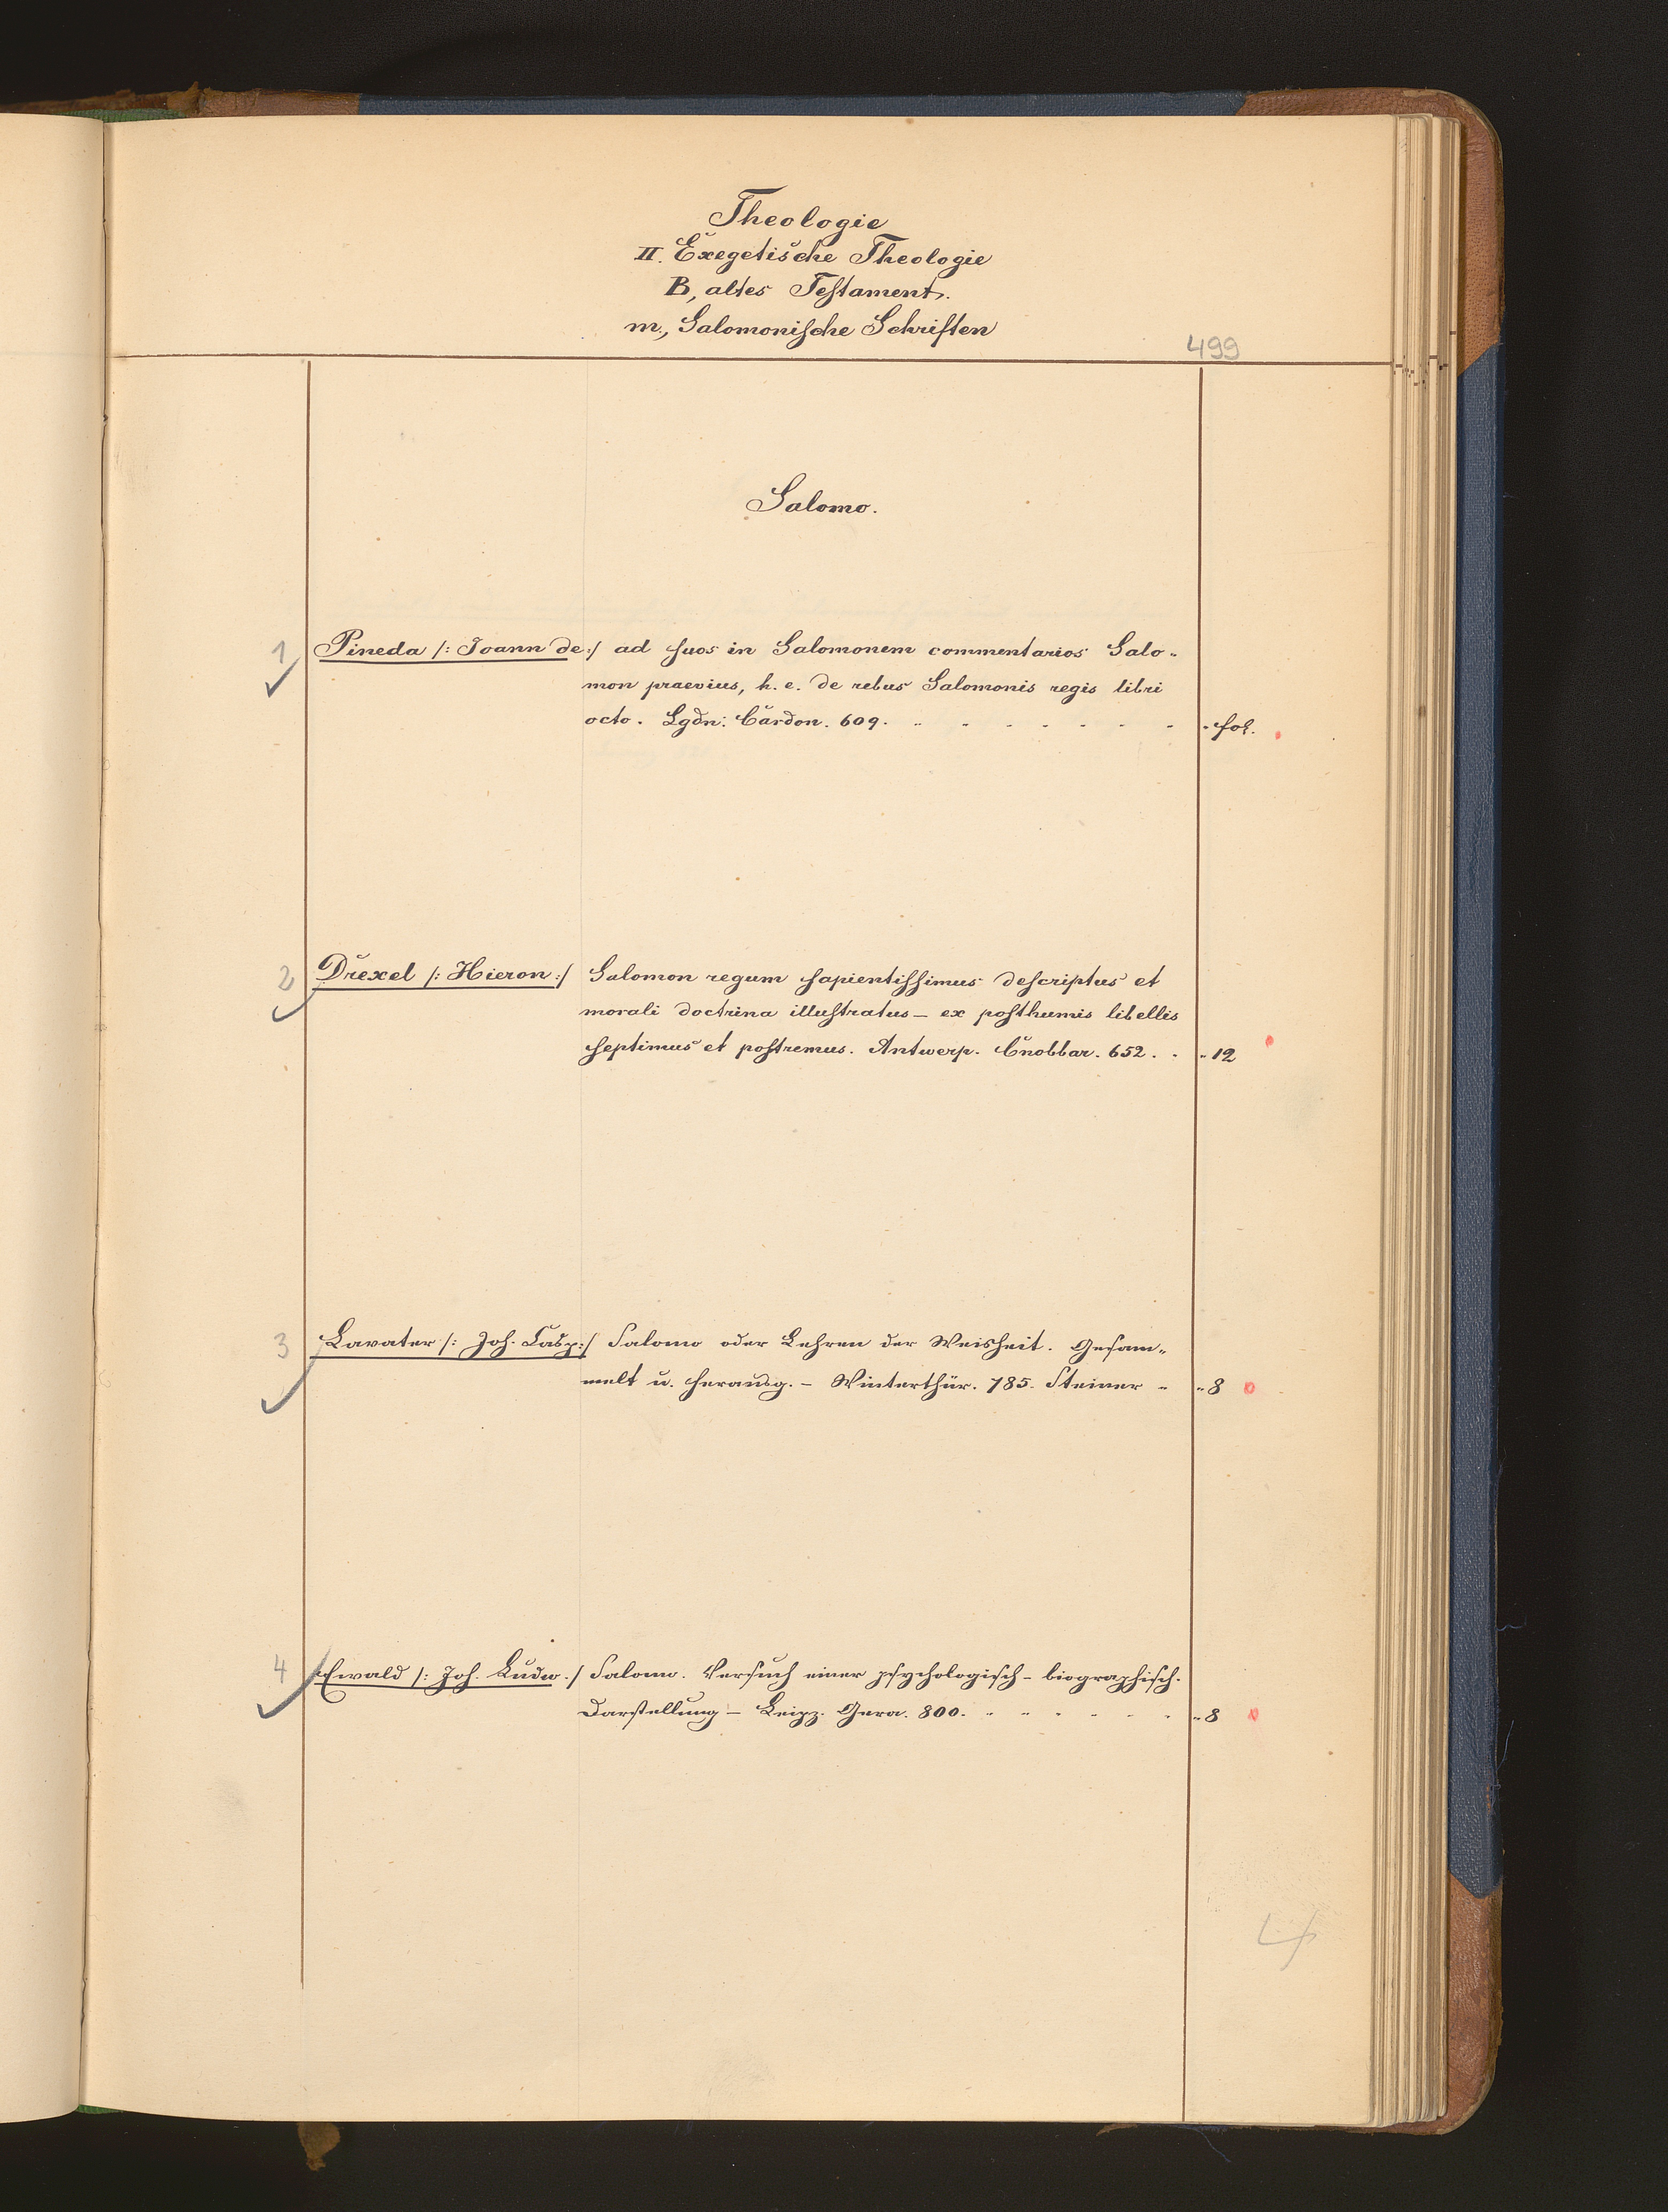 Theologie
II. Exegetische Theologie
B, altes Testament.
m., Salomonische Schriften
499
Salomo.
1 Pineda /: Joann de :/ ad suos in Salomonem commentarios Salo-
mon praevius, h. e. de rebus Salomonis regis libri
octo. Lgdn: Cardon. 609. fol.
2 Drexel /: Hieron :/ Salomon regum sapientissimus descriptus et
morali doctrina illustratus – ex posthumis libellis
septimus et postremus. Antwerp. Cnobbar. 652. 12
3 Lavater /: Joh. Casp :/ Salomo oder Lehren der Weisheit. Gesam-
melt u. herausg. – Winterthur. 785. Steiner 8
4 Ewald /: Joh. Ludw. :/ Salomo. Versuch einer psychologisch-biographisch.
Darstellung – Leipz. Gera. 800. 8
4